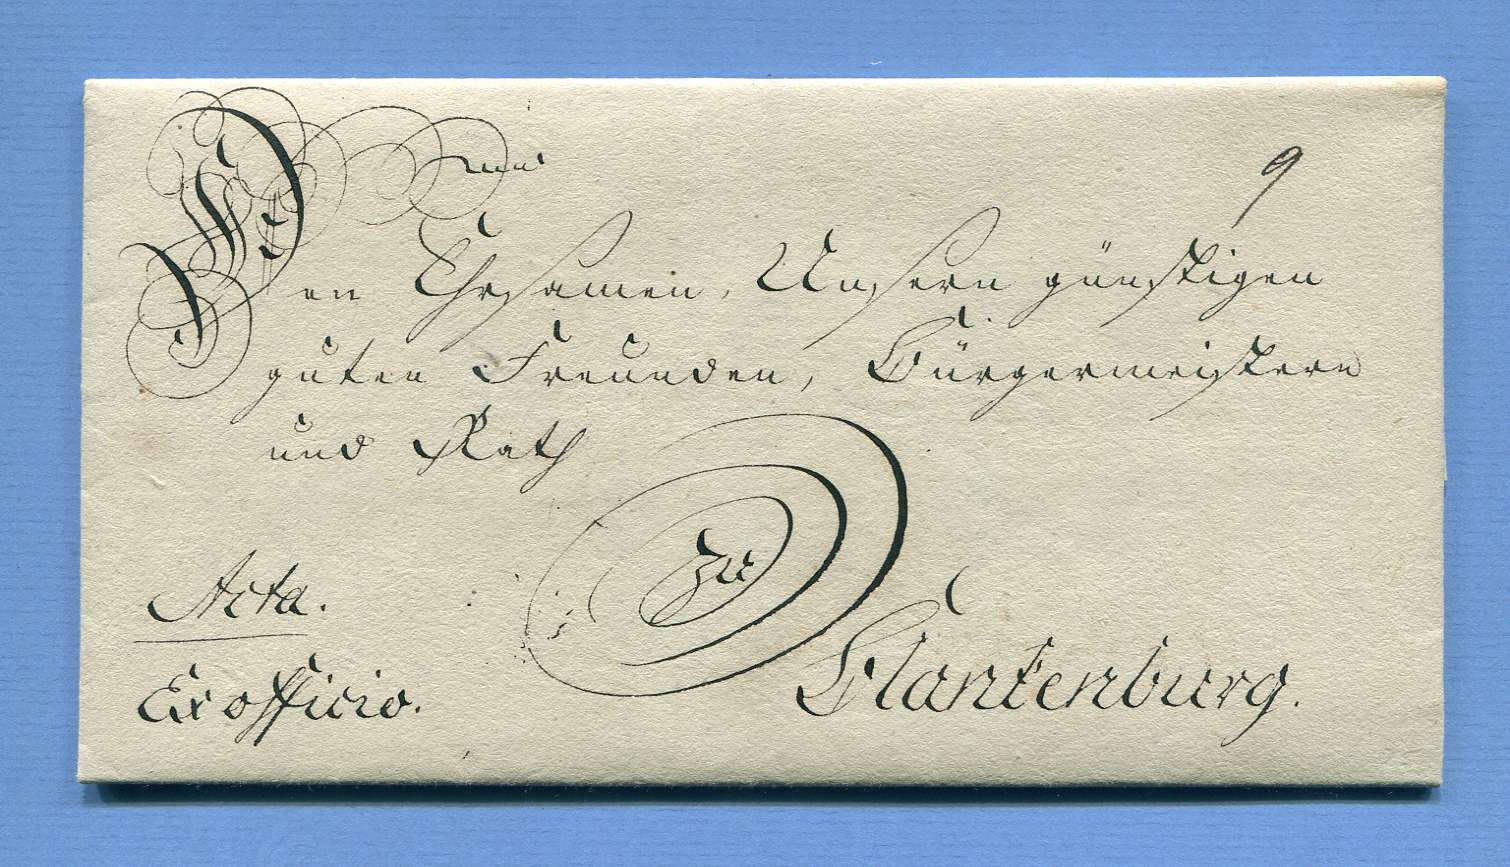 9
Den Ehrsamen, Unsern günstigen
guten Freunden, Bürgermeistern
und Rath
zu
Blankenburg.
Acta.
Ex officio.